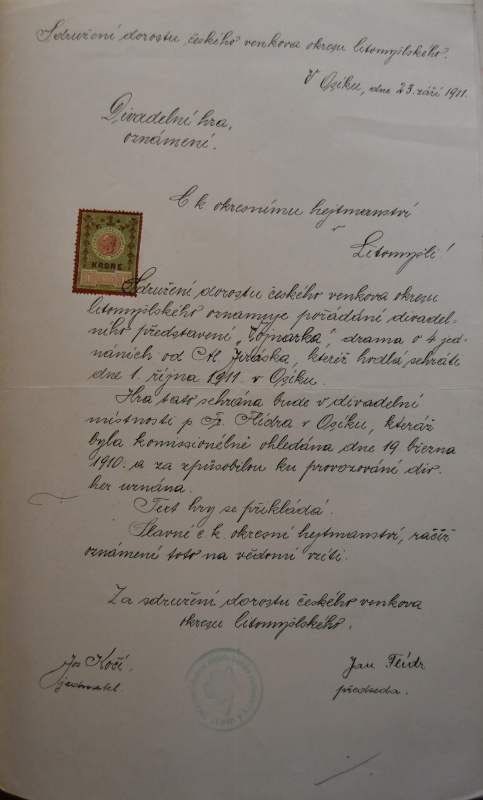 Sdružení dorostu českého venkova okresu litomyšlského.
V Osíku, dne 23. září 1911.
Divadelní hra,
oznámení.
C k. okresnímu hejtmanství
v
Litomyšli!
1
KRONE
Sdružení dorostu českého venkova okresu
litomyšlského oznamuje pořádání divadel-
ního představení „Vojnarka", drama o 4 jed-
náních od Al. Jiráska, kteréž hodlá sehráti
dne 1. října 1911 v Osíku.
Hra tato sehrána bude v divadelní
místnosti p Fr. Flídra v Osíku, kteráž
byla komissionélně ohledána dne 19. března
1910. a za způsobilou ku provozování div.
her uznána.
Text hry se přikládá.
Slavné c. k. okresní hejtmanství, račíž
oznámení toto na vědomí vzíti.
Za sdružení dorostu českého venkova
okresu litomyšlského.
Jos Kočí
jednatel.
Jan Flídr
předseda.